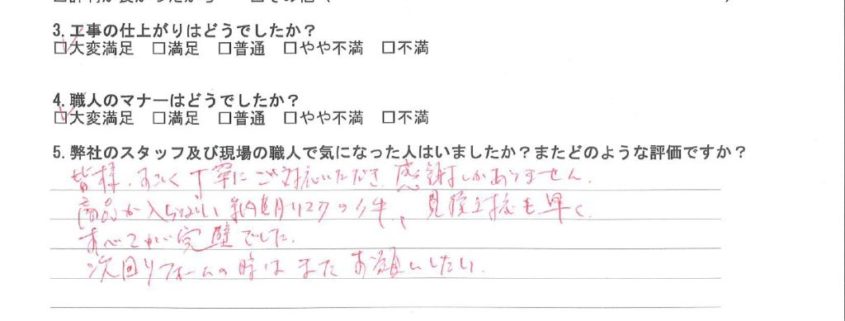 3. 工事の仕上がりはどうでしたか？
☑大変満足 □満足 □普通 □やや不満 □不満
4. 職人のマナーはどうでしたか？
☑大変満足 □満足 □普通 □やや不満 □不満
5. 弊社のスタッフ及び現場の職人で気になった人はいましたか？またどのような評価ですか？
皆様、すごく丁寧にご対応いただき感謝しかありません。
商品が入らない 納期リスクの件、見積対応も早く、
すべてが完璧でした。
次回リフォームの時はまたお願いしたい。